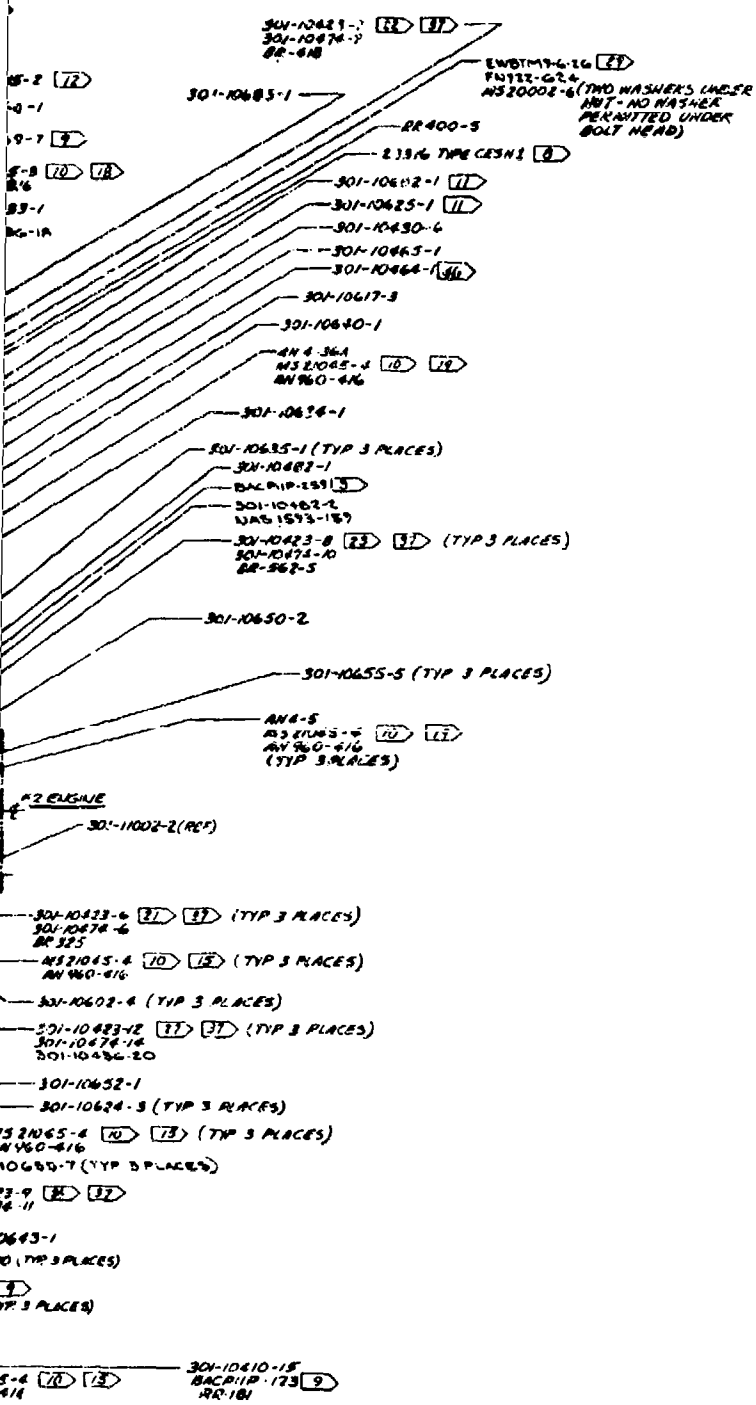 301-10423-? 22 37
301-10474-?
BR-418
EWBTM9-6-26 29
FN922-624
MS20002-6 (TWO WASHERS UNDER
NUT - NO WASHER
PERMITTED UNDER
BOLT HEAD)
5-2 12
301-10683-1
0-1
RR400-5
9-7 9
23916 TYPE CESNI 8
5-8 10 18
301-10602-1 11
301-10625-1 11
83-1
301-10430-6
301-10465-1
301-10464-1 36
301-10617-3
301-10640-1
AN4-36A
MS21045-4 10 19
AN960-416
301-10634-1
301-10635-1 (TYP 3 PLACES)
301-10482-1
301-10482-2
NAS1593-159
301-10423-8 23 37 (TYP 3 PLACES)
301-10474-10
BR-562-5
301-10650-2
301-10655-5 (TYP 3 PLACES)
AN4-5
MS21045-4 10 15
AN960-416
(TYP 3 PLACES)
#2 ENGINE
301-11002-2 (REF)
301-10423-6 21 37 (TYP 3 PLACES)
301-10474-6
BR325
MS21045-4 10 15 (TYP 3 PLACES)
AN960-416
301-10602-4 (TYP 3 PLACES)
301-10423-12 27 37 (TYP 3 PLACES)
301-10474-14
301-10436-20
301-10652-1
301-10624-3 (TYP 3 PLACES)
21045-4 10 15 (TYP 3 PLACES)
960-416
(TYP 3 PLACES)
3-9 37
-11
0643-1
(TYP 3 PLACES)
9
3 PLACES)
301-10410-15
5-4 10 15
BACP11P-173 9
RR-181